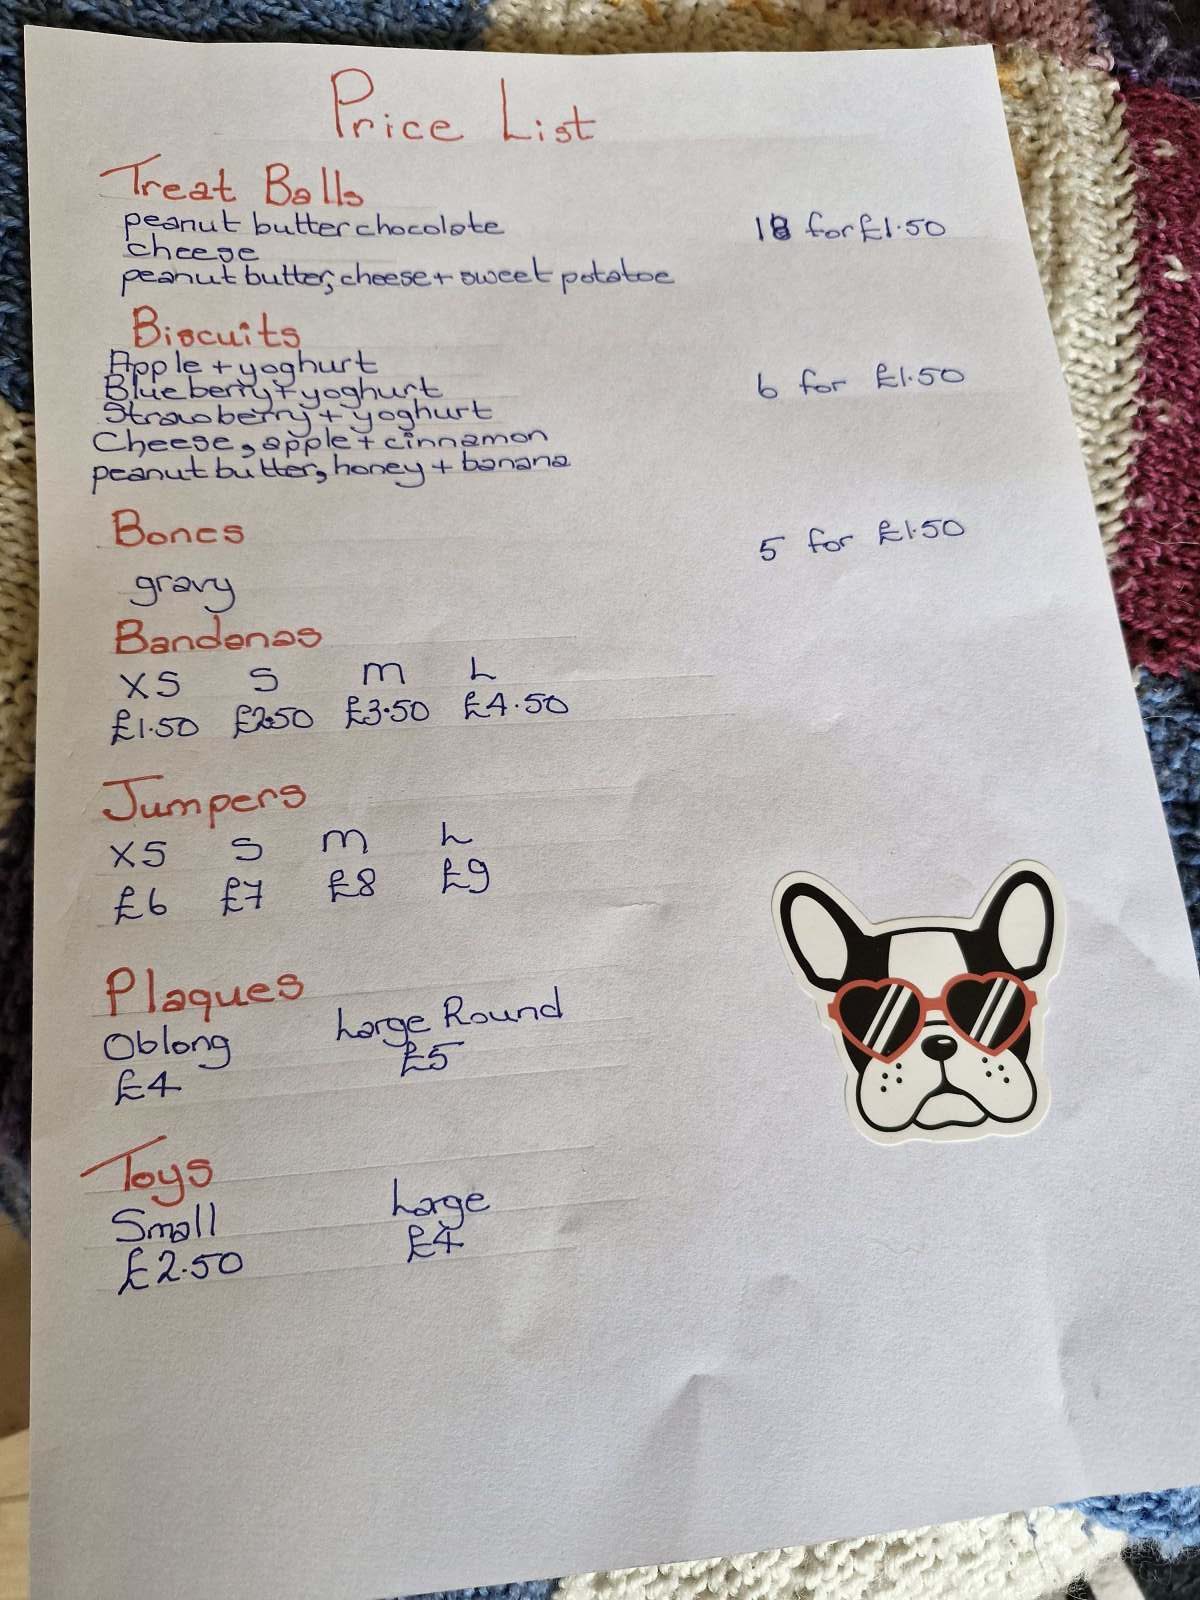 Price List
Treat Balls
peanut butter chocolate
18 for £1.50
cheese
peanut butter, cheese + sweet potatoe
Biscuits
Apple + yoghurt
Blueberry + yoghurt
6 for £1.50
Strawberry + yoghurt
Cheese, apple + cinnamon
peanut butter, honey + banana
Bones
5 for £1.50
gravy
Bandanas
XS S M L
£1.50 £2.50 £3.50 £4.50
Jumpers
XS S M L
£6 £7 £8 £9
Plaques
Oblong Large Round
£4 £5
Toys
Small Large
£2.50 £4